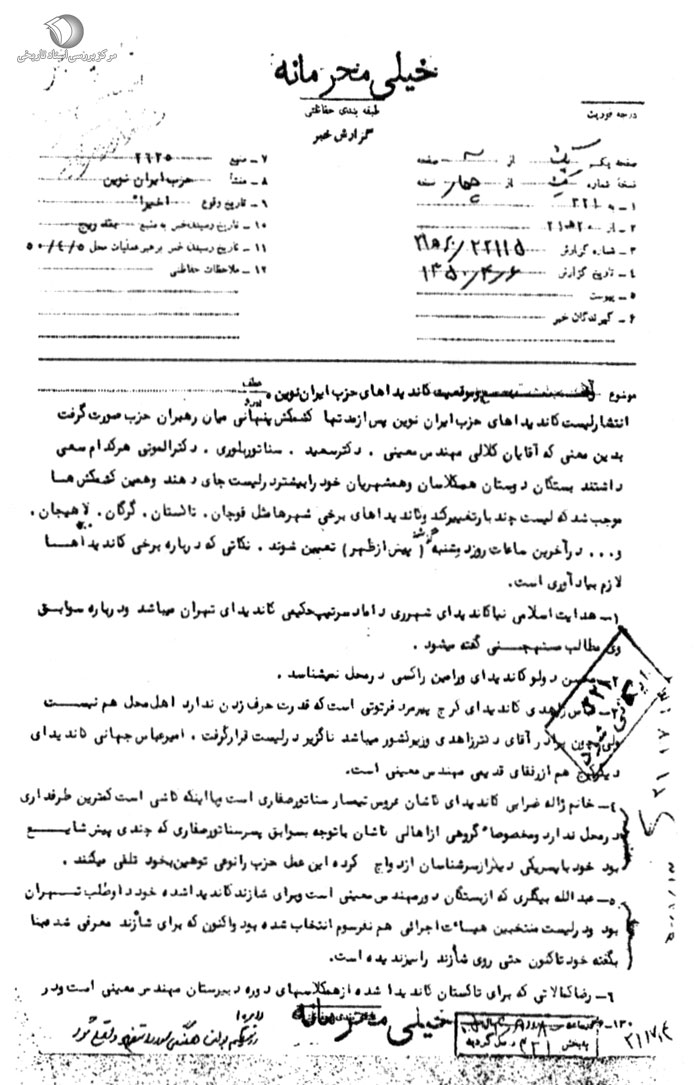 مرکز بررسی اسناد تاریخی
خیلی محرمانه
طبقه بندی حفاظتی
گزارش خبر
درجه فوریت
صفحه یک از سه صفحه
نسخه شماره یک از چهار نسخه
۱ - به ۳۲۱
۲ - از ۲۱ﻫ۲۰
۳ - شماره گزارش ۲۱ﻫ۲۰/۲۲۱۱۵
۴ - تاریخ گزارش ۱۳۵۰/۴/۶
۵ - پیوست
۶ - گیرندگان خبر
۷ - منبع ۲۶۲۵
۸ - منشأ حزب ایران نوین
۹ - تاریخ وقوع اخیرا"
۱۰ - تاریخ رسیدن خبر به منبع بتدریج
۱۱ - تاریخ رسیدن خبر به رهبر عملیات محل ۵۰/۴/۵
۱۲ - ملاحظات حفاظتی
موضوع وضعیت کاندیداهای حزب ایران نوین
عطف
پیرو
انتشار لیست کاندیداهای حزب ایران نوین پس از مدتها کشمکش پنهانی میان رهبران حزب صورت گرفت
بدین معنی که آقایان کلالی مهندس معینی . دکتر سعید . سناتور بلوری . دکتر الموتی هر کدام سعی
داشتند بستگان دوستان همکلاسان و همشهریان خود را بیشتر در لیست جای دهند و همین کشمکش ها
موجب شد که لیست چند بار تغییر کند و کاندیداهای برخی شهرها مثل قوچان . تاکستان . گرگان . لاهیجان .
و ... در آخرین ساعات روز دوشنبه گذشته ( پیش از ظهر ) تعیین شوند . نکاتی که درباره برخی کاندیداها
لازم بیادآوری است .
۱- هدایت اسلامی نیا کاندیدای شهرری داماد سرتیپ حکیمی کاندیدای تهران میباشد و درباره سوابق
وی مطالب مستهجنی گفته میشود .
۲- دولو کاندیدای ورامین راکسی در محل نمیشناسد .
۳- زاهدی کاندیدای کرج پیرمرد فرتوتی است که قدرت حرف زدن ندارد اهل محل هم نیست
ولی چون برادر آقای دکتر زاهدی وزیر کشور میباشد ناگزیر در لیست قرار گرفت . امیر عباس جهانی کاندیدای
دیگر کرج هم از رفقای قدیمی مهندس معینی است .
۴- خانم ژاله ضرابی کاندیدای کاشان عروس تیمسار سناتور صفاری است و با اینکه کاشی است کمترین طرفداری
در محل ندارد و مخصوصا" گروهی از اهالی کاشان با توجه بسوابق پسر سناتور صفاری که چندی پیش شایع
بود خود با پسر یکی دیگر از سرشناسان ازدواج کرده این عمل حزب را نوعی توهین بخود تلقی میکنند .
۵- عبدالله بیگلری که از بستگان دور مهندس معینی است و برای شازند کاندیدا شده خود داوطلب تهران
بود و در لیست منتخبین هیات اجرائی هم نفر سوم انتخاب شده بود و اکنون که برای شازند معرفی شده بنا
بگفته خود تاکنون حتی روی شازند را نیز ندیده است .
۶- رضا کمالاتی که برای تاکستان کاندیدا شده از همکلاسیهای دوره دبیرستان مهندس معینی است و در
خیلی محرمانه